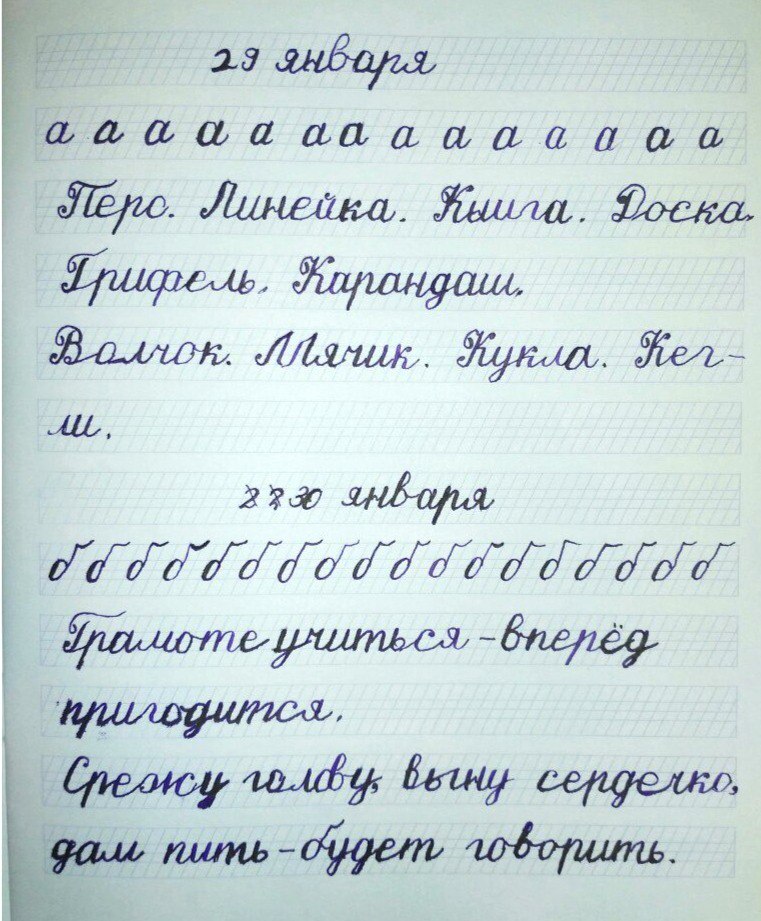 29 января
а а а а а а а а а а а а а а
Перо. Линейка. Книга. Доска.
Грифель. Карандаш.
Волчок. Мячик. Кукла. Кег-
ли.
30 января
б б б б б б б б б б б б б б б б б б
Грамоте учиться - вперёд
пригодится.
Срежу голову, выну сердечко,
дам пить - будет говорить.